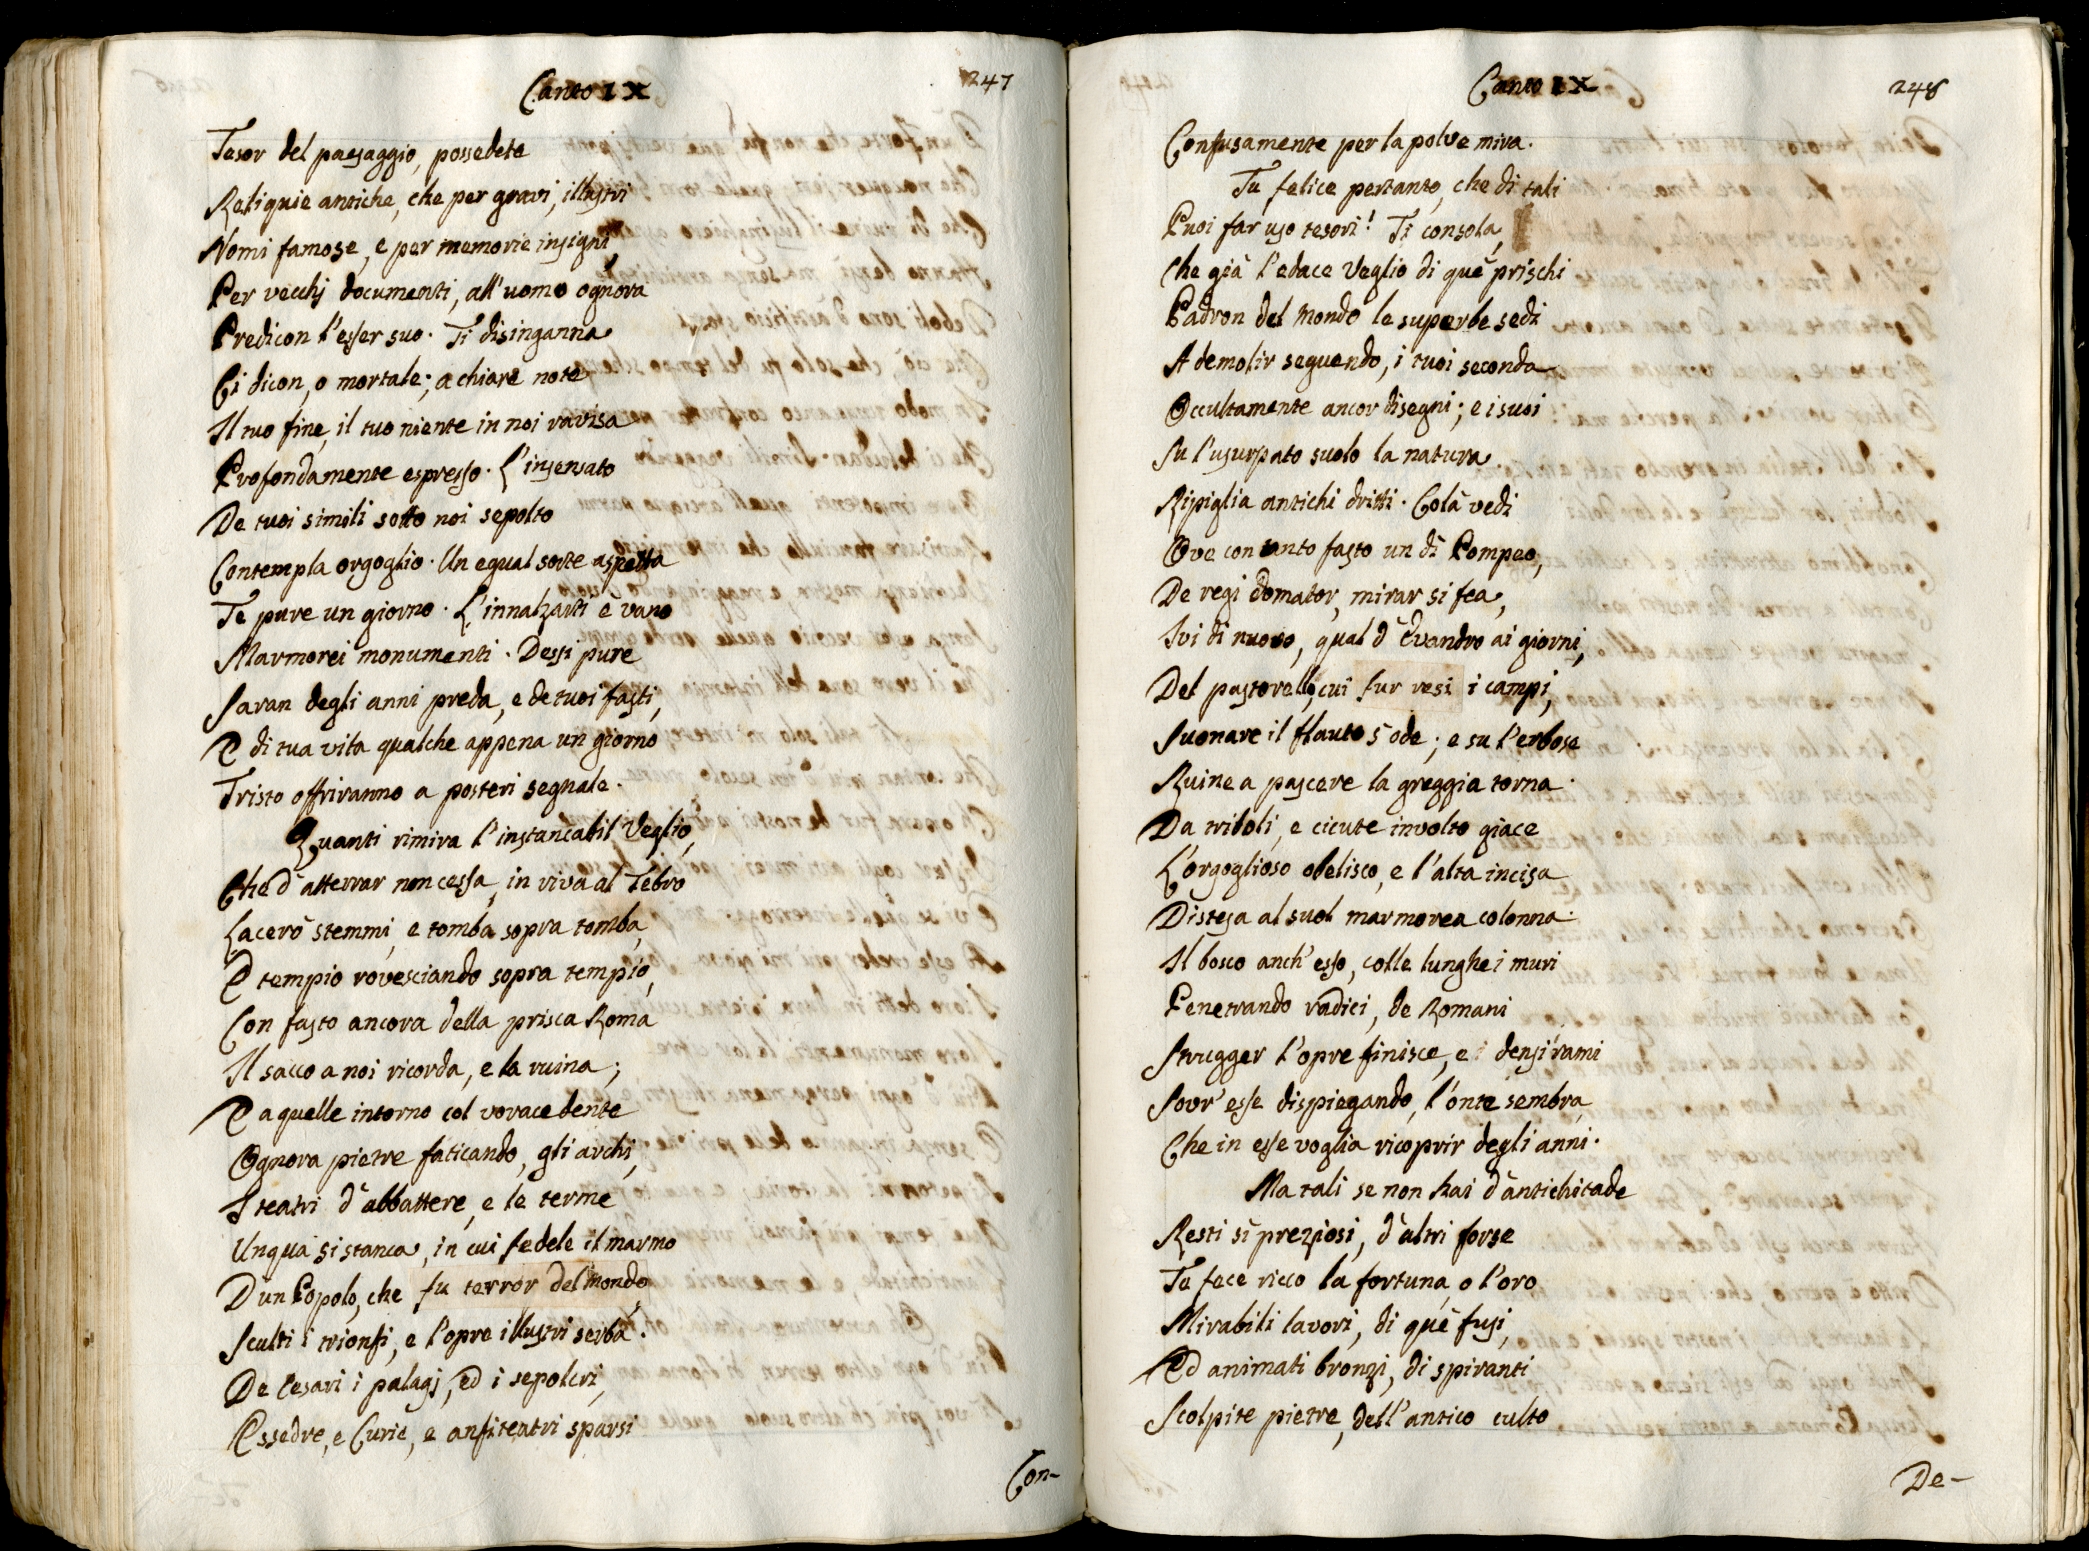 Canto IX
247
Tesor del paesaggio, possedete
Reliquie antiche, che per gravi, illustri
Nomi famose, e per memorie insigni,
Per vecchj documenti, all'uomo ognora
Predicon l'esser suo. Ti disinganna
Ci dicon, o mortale; a chiare note
Il tuo fine, il tuo niente in noi ravvisa
Profondamente espresso. L'insensato
De tuoi simili sotto noi sepolto
Contempla orgoglio. Un egual sorte aspetta
Te pure un giorno. L'innalzarti è vano
Marmorei monumenti. Dessi pure
Saran degli anni preda, e de tuoi fasti,
E di tua vita qualche appena un giorno
Tristo offriranno a posteri segnale.
Quanti rimira l'instancabil Veglio,
Che d'atterrar non cessa, in riva al Tebro
Lacerò stemmi, e tomba sopra tomba,
E tempio rovesciando sopra tempio,
Con fasto ancora della prisca Roma
Il sacco a noi ricorda, e la ruina;
E a quelle intorno col vorace dente
Ognora pietre faticando, gli archi,
I teatri d'abbattere, e le terme
Unqua si stanca, in cui fedele il marmo
D'un Popolo, che fu terror del Mondo,
Sculti i trionfi, e l'opre illustri serba.
De Cesari i palagj, ed i sepolcri,
Essedre, e Curie, e anfiteatri sparsi
Con-
Canto IX
248
Confusamente per la polve mira.
Tu felice pertanto, che di tali
Puoi far uso tesori! Ti consola,
Che già l'edace Veglio di què prischi
Padron del Mondo le superbe sedi
A demolir seguendo, i tuoi seconda
Occultamente ancor disegni; e i suoi
Su l'usurpato suolo la natura
Ripiglia antichi dritti. Colà vedi
Ove con tanto fasto un dì Pompeo,
De regi domator, mirar si fea,
Ivi di nuovo, qual d'Evandro ai giorni,
Del pastorello, cui fur resi i campi,
Suonare il flauto s'ode; e su l'erbose
Ruine a pascere la greggia torna.
Da triboli, e cicute involto giace
L'orgoglioso obelisco, e l'alta incisa
Distesa al suol marmorea colonna.
Il bosco anch'esso, colle lunghe i muri
Penetrando radici, de Romani
Strugger l'opre finisce, e i densi rami
Sovr'esse dispiegando, l'onte sembra,
Che in esse voglia ricoprir degli anni.
Ma tali se non hai d'antichitade
Resti sì preziosi, d'altri forse
Te fece ricco la fortuna, o l'oro
Mirabili lavori, di què fusi,
Ed animati bronzi, di spiranti
Scolpite pietre, dell'antico culto
De-